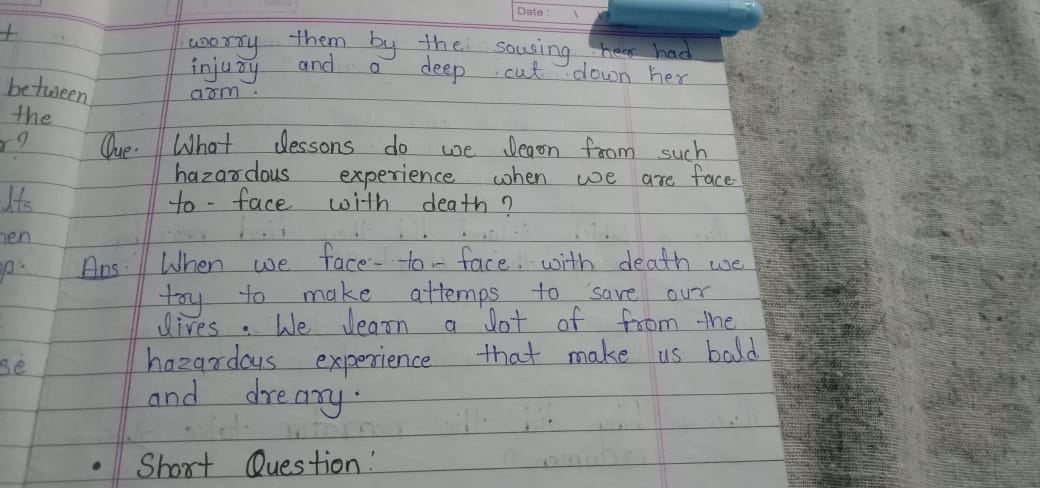 Date:
worry them by the souing her had
injury and a deep cut down her
arm.
between
the
r?
Que. What lessons do we learn from such
hazardous experience when we are face-
to-face with death?
Its
nen
Ans. When we face-to-face. with death we
try to make attemps to save our
lives. We learn a lot of from the
hazardous experience that make us bald
and dreary.
se
• Short Question: